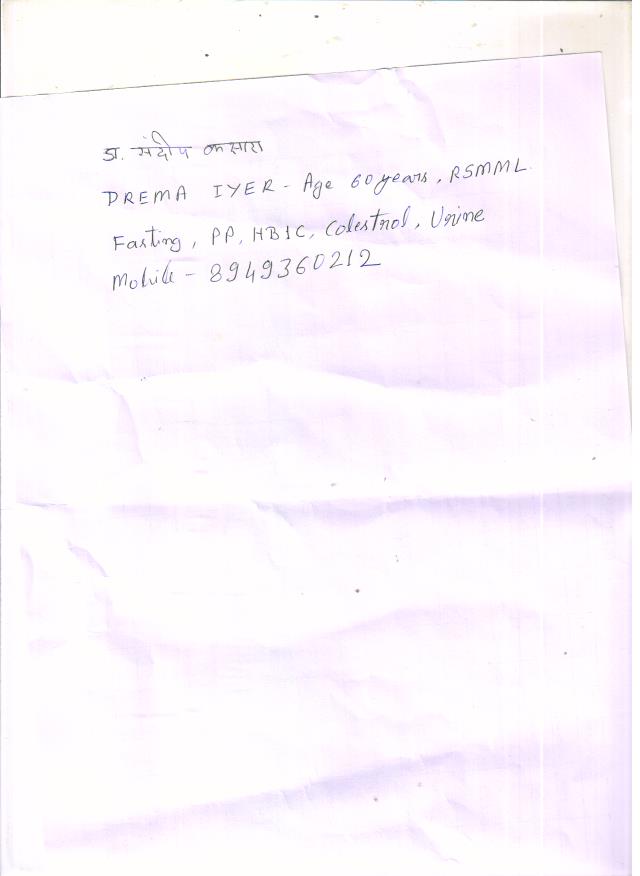 डा. संदीप कसारा
DREMA IYER - Age 60 years, RSMML.
Fasting, PP, HB1C, Colestrol, Urine
Mobile - 8949360212